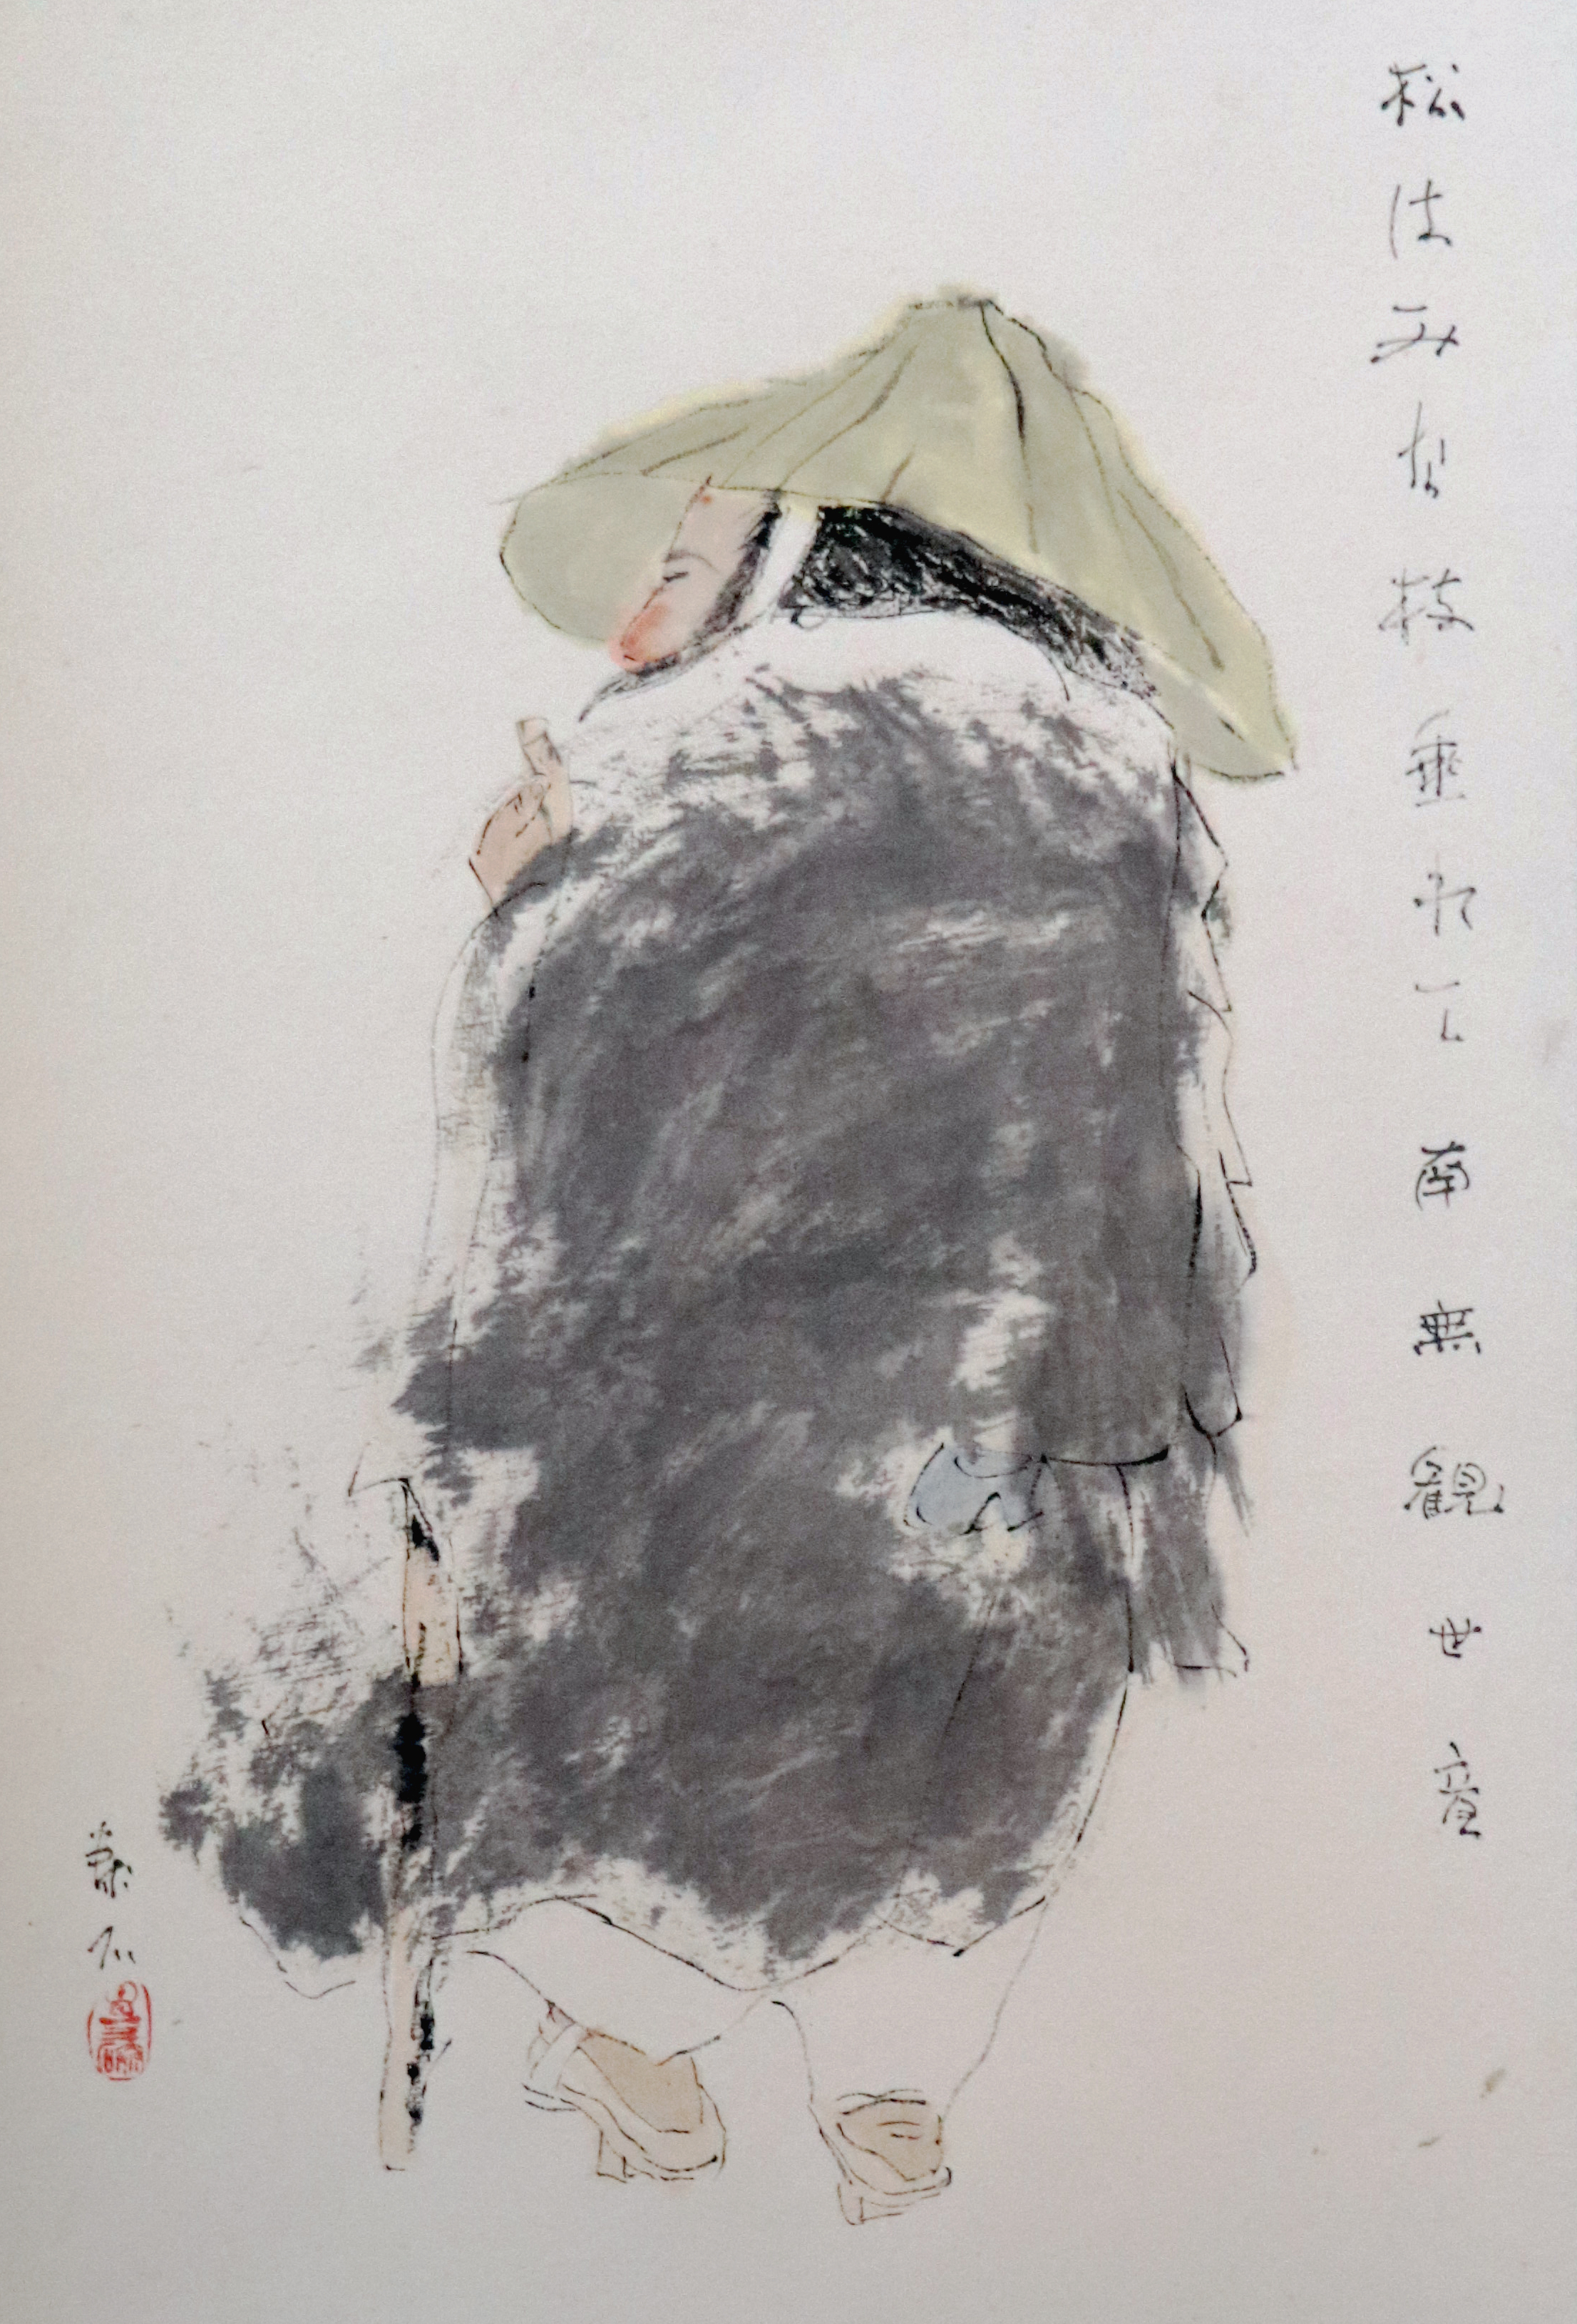 松はみな枝垂れて南無観世音